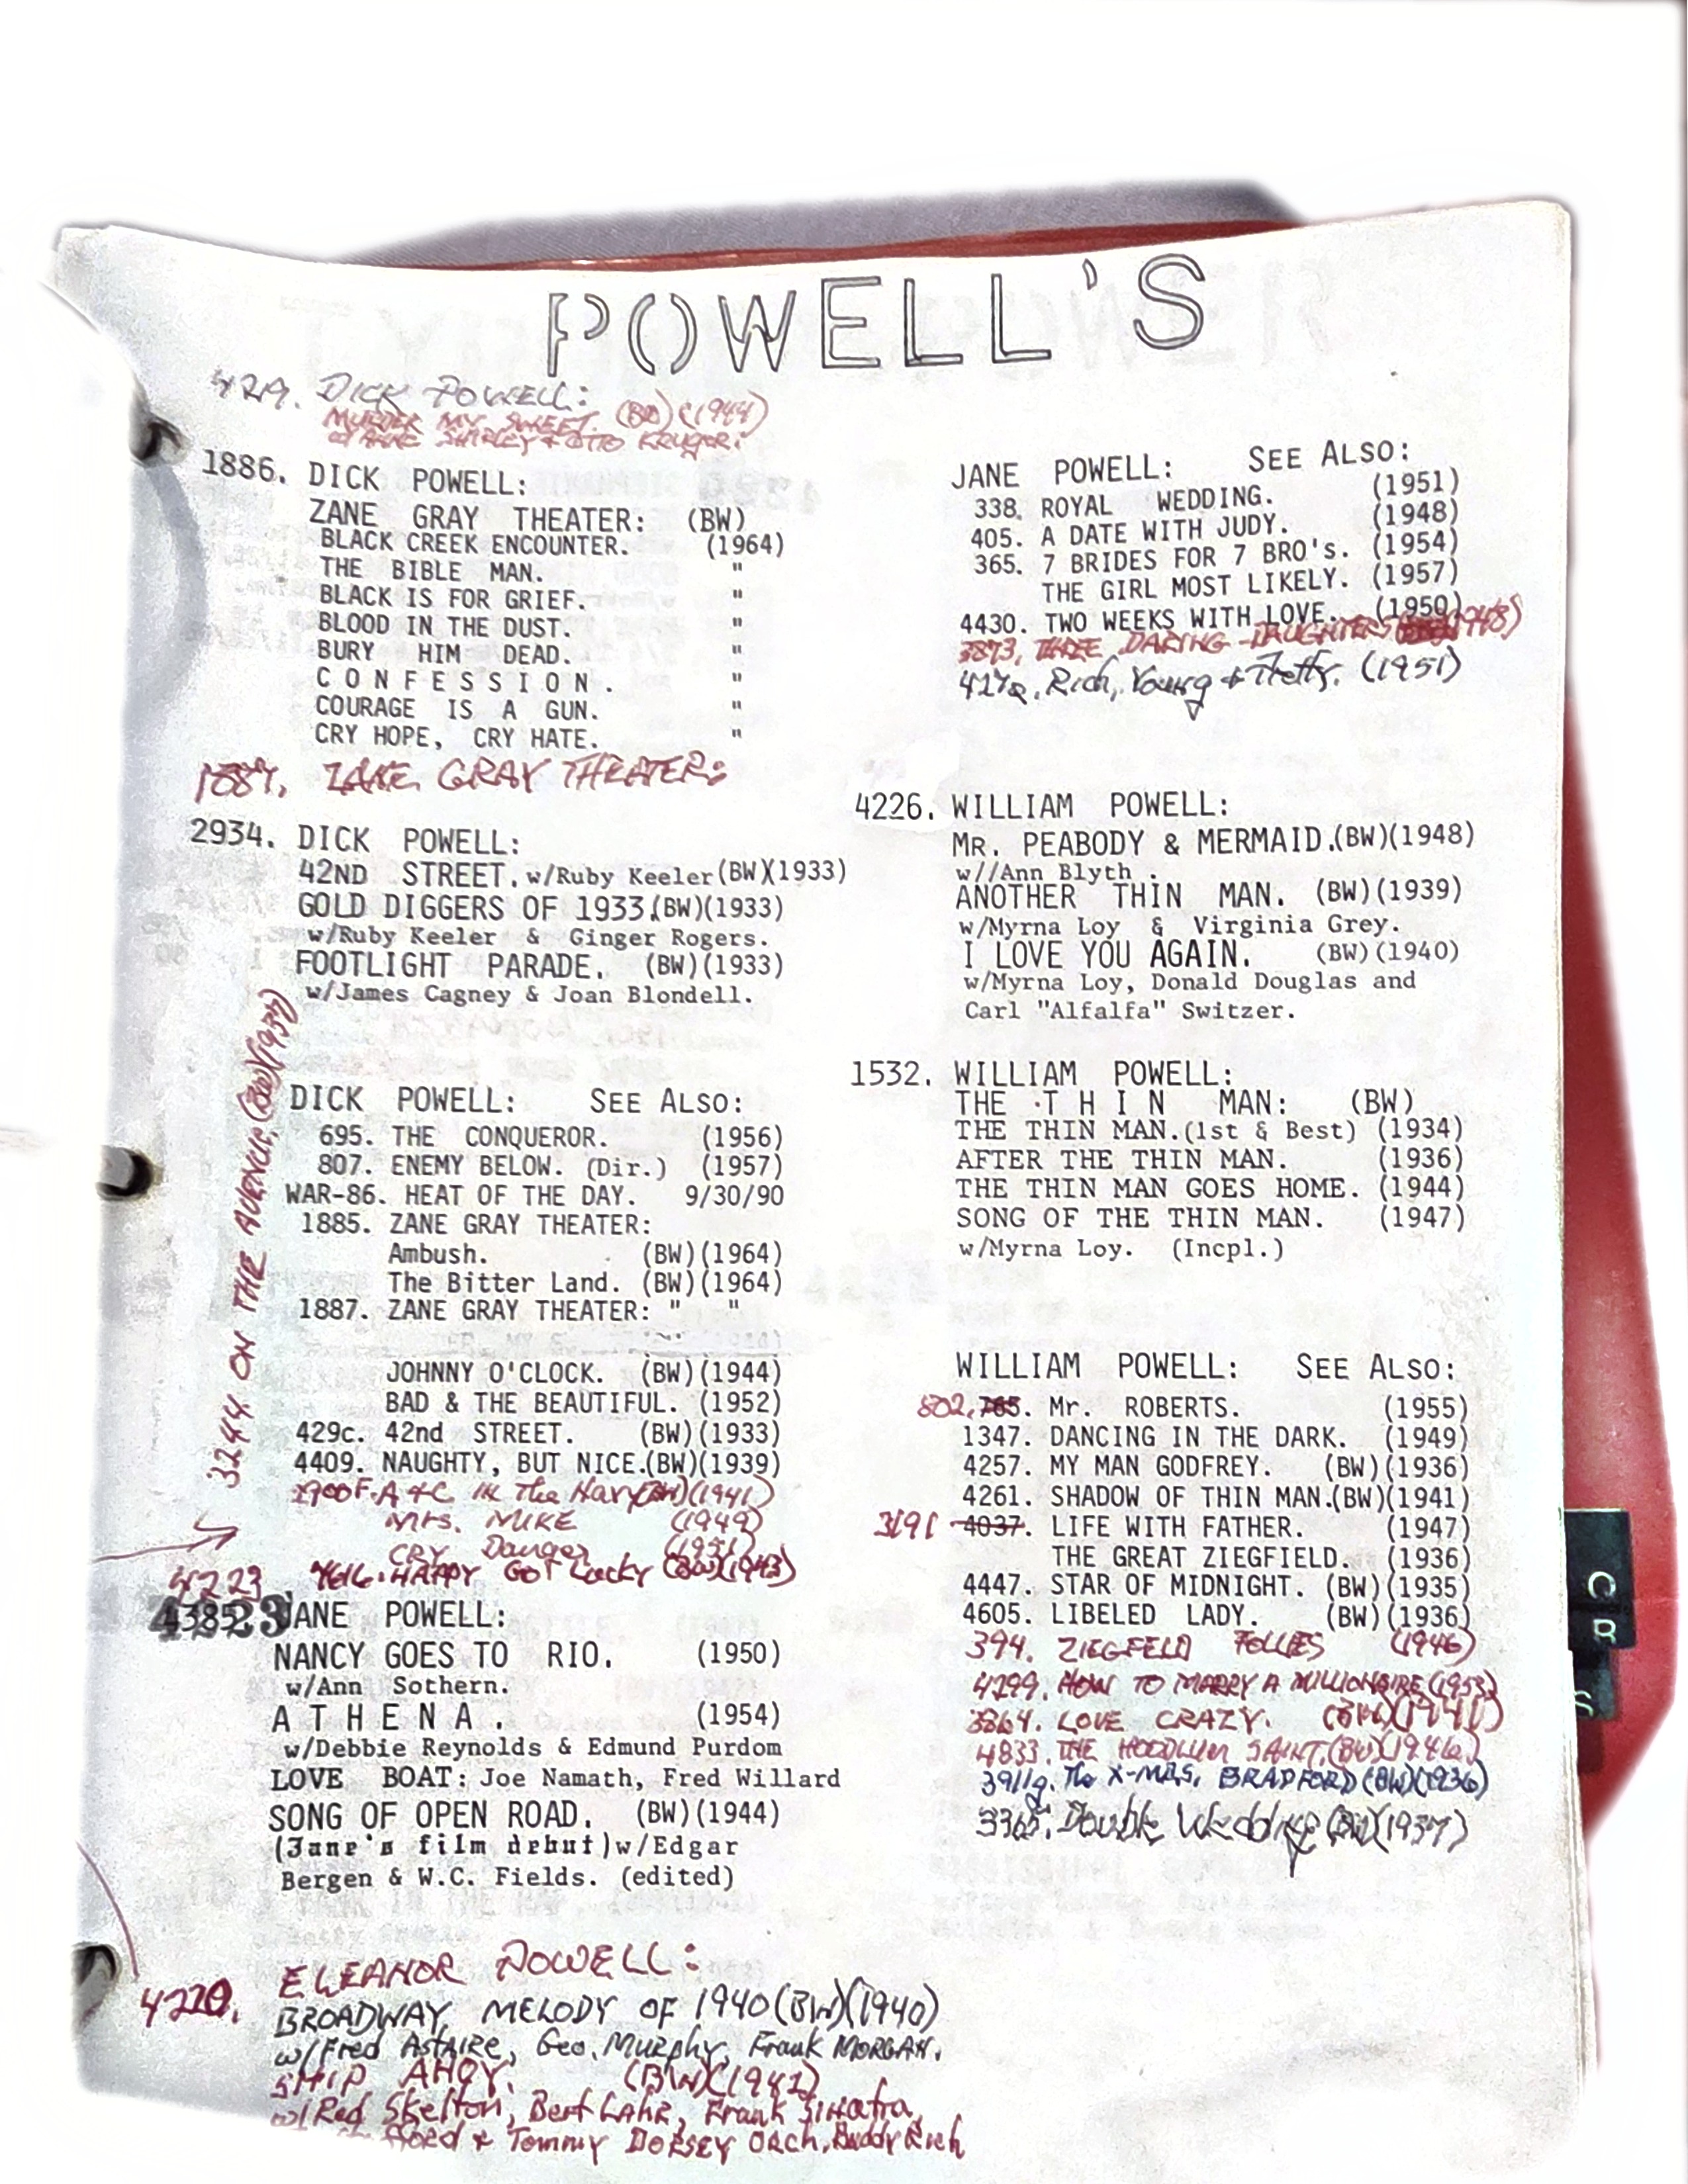 POWELL'S
429. DICK POWELL:
MURDER MY SWEET. (BW) (1944)
w/ ANNE SHIRLEY & OTTO KRUGER.
1886. DICK POWELL:
ZANE GRAY THEATER: (BW)
BLACK CREEK ENCOUNTER. (1964)
THE BIBLE MAN. "
BLACK IS FOR GRIEF. "
BLOOD IN THE DUST. "
BURY HIM DEAD. "
CONFESSION. "
COURAGE IS A GUN. "
CRY HOPE, CRY HATE. "
1887. ZANE GRAY THEATER:
2934. DICK POWELL:
42ND STREET. w/Ruby Keeler (BW)(1933)
GOLD DIGGERS OF 1933.(BW)(1933)
w/Ruby Keeler & Ginger Rogers.
FOOTLIGHT PARADE. (BW)(1933)
w/James Cagney & Joan Blondell.
3244 ON THE AVENUE.(BW)(1937)
DICK POWELL: SEE ALSO:
695. THE CONQUEROR. (1956)
807. ENEMY BELOW. (Dir.) (1957)
WAR-86. HEAT OF THE DAY. 9/30/90
1885. ZANE GRAY THEATER:
Ambush. (BW)(1964)
The Bitter Land. (BW)(1964)
1887. ZANE GRAY THEATER: " "
JOHNNY O'CLOCK. (BW)(1944)
BAD & THE BEAUTIFUL. (1952)
429c. 42nd STREET. (BW)(1933)
4409. NAUGHTY, BUT NICE.(BW)(1939)
2900F. A & C IN The Navy (BW)(1941)
Mrs. MIKE (1949)
CRY Danger (1951)
4616. HAPPY GO Lucky (BW)(1943)
4223
JANE POWELL:
NANCY GOES TO RIO. (1950)
w/Ann Sothern.
ATHENA. (1954)
w/Debbie Reynolds & Edmund Purdom
LOVE BOAT: Joe Namath, Fred Willard
SONG OF OPEN ROAD. (BW)(1944)
(Jane's film debut)w/Edgar
Bergen & W.C. Fields. (edited)
4220. ELEANOR POWELL:
BROADWAY MELODY OF 1940 (BW)(1940)
w/Fred Astaire, Geo. Murphy, Frank MORGAN.
SHIP AHOY. (BW)(1942)
w/Red Skelton, Bert Lahr, Frank Sinatra,
& Tommy DORSEY ORCH, Buddy Rich
JANE POWELL: SEE ALSO:
338. ROYAL WEDDING. (1951)
405. A DATE WITH JUDY. (1948)
365. 7 BRIDES FOR 7 BRO's. (1954)
THE GIRL MOST LIKELY. (1957)
4430. TWO WEEKS WITH LOVE. (1950)
3873. THREE DARING DAUGHTERS (1948)
Rich, Young & Pretty. (1951)
4226. WILLIAM POWELL:
MR. PEABODY & MERMAID.(BW)(1948)
w//Ann Blyth .
ANOTHER THIN MAN. (BW)(1939)
w/Myrna Loy & Virginia Grey.
I LOVE YOU AGAIN. (BW)(1940)
w/Myrna Loy, Donald Douglas and
Carl "Alfalfa" Switzer.
1532. WILLIAM POWELL:
THE THIN MAN: (BW)
THE THIN MAN.(1st & Best) (1934)
AFTER THE THIN MAN. (1936)
THE THIN MAN GOES HOME. (1944)
SONG OF THE THIN MAN. (1947)
w/Myrna Loy. (Incpl.)
WILLIAM POWELL: SEE ALSO:
802. 785. Mr. ROBERTS. (1955)
1347. DANCING IN THE DARK. (1949)
4257. MY MAN GODFREY. (BW)(1936)
4261. SHADOW OF THIN MAN.(BW)(1941)
3191 4037. LIFE WITH FATHER. (1947)
THE GREAT ZIEGFIELD. (1936)
4447. STAR OF MIDNIGHT. (BW)(1935)
4605. LIBELED LADY. (BW)(1936)
394. ZIEGFELD FOLLIES (1946)
4299. HOW TO MARRY A MILLIONAIRE (1953)
3864. LOVE CRAZY. (BW)(1941)
4833. THE HOODLUM SAINT.(BW)(1946)
3911g. The X-MRS. BRADFORD (BW)(1936)
3365. Double Wedding (BW)(1937)